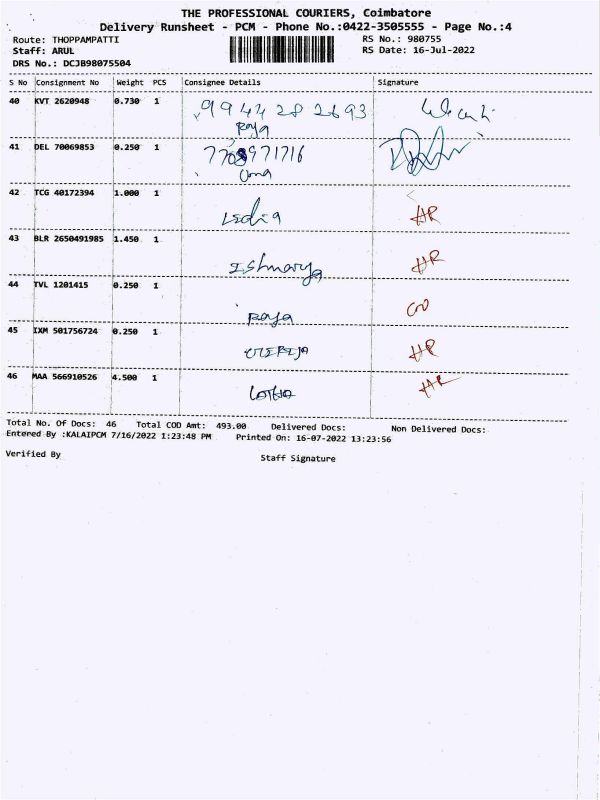 THE PROFESSIONAL COURIERS, Coimbatore
Delivery Runsheet - PCM - Phone No.:0422-3505555 - Page No.:4
Route: THOPPAMPATTI RS No.: 980755
Staff: ARUL RS Date: 16-Jul-2022
DRS No.: DCJB98075504
S No Consignment No Weight PCS Consignee Details Signature
40 KVT 2620948 0.730 1 9944282693
Raja
41 DEL 70069853 0.250 1 7708971716
Uma
42 TCG 40172394 1.000 1 HR
43 BLR 2650491985 1.450 1 HR
44 TVL 1201415 0.250 1 Raja
45 IXM 501756724 0.250 1 HR
46 MAA 566910526 4.500 1 HR
Total No. Of Docs: 46 Total COD Amt: 493.00 Delivered Docs: Non Delivered Docs:
Entered By :KALAIPCM 7/16/2022 1:23:48 PM Printed On: 16-07-2022 13:23:56
Verified By Staff Signature